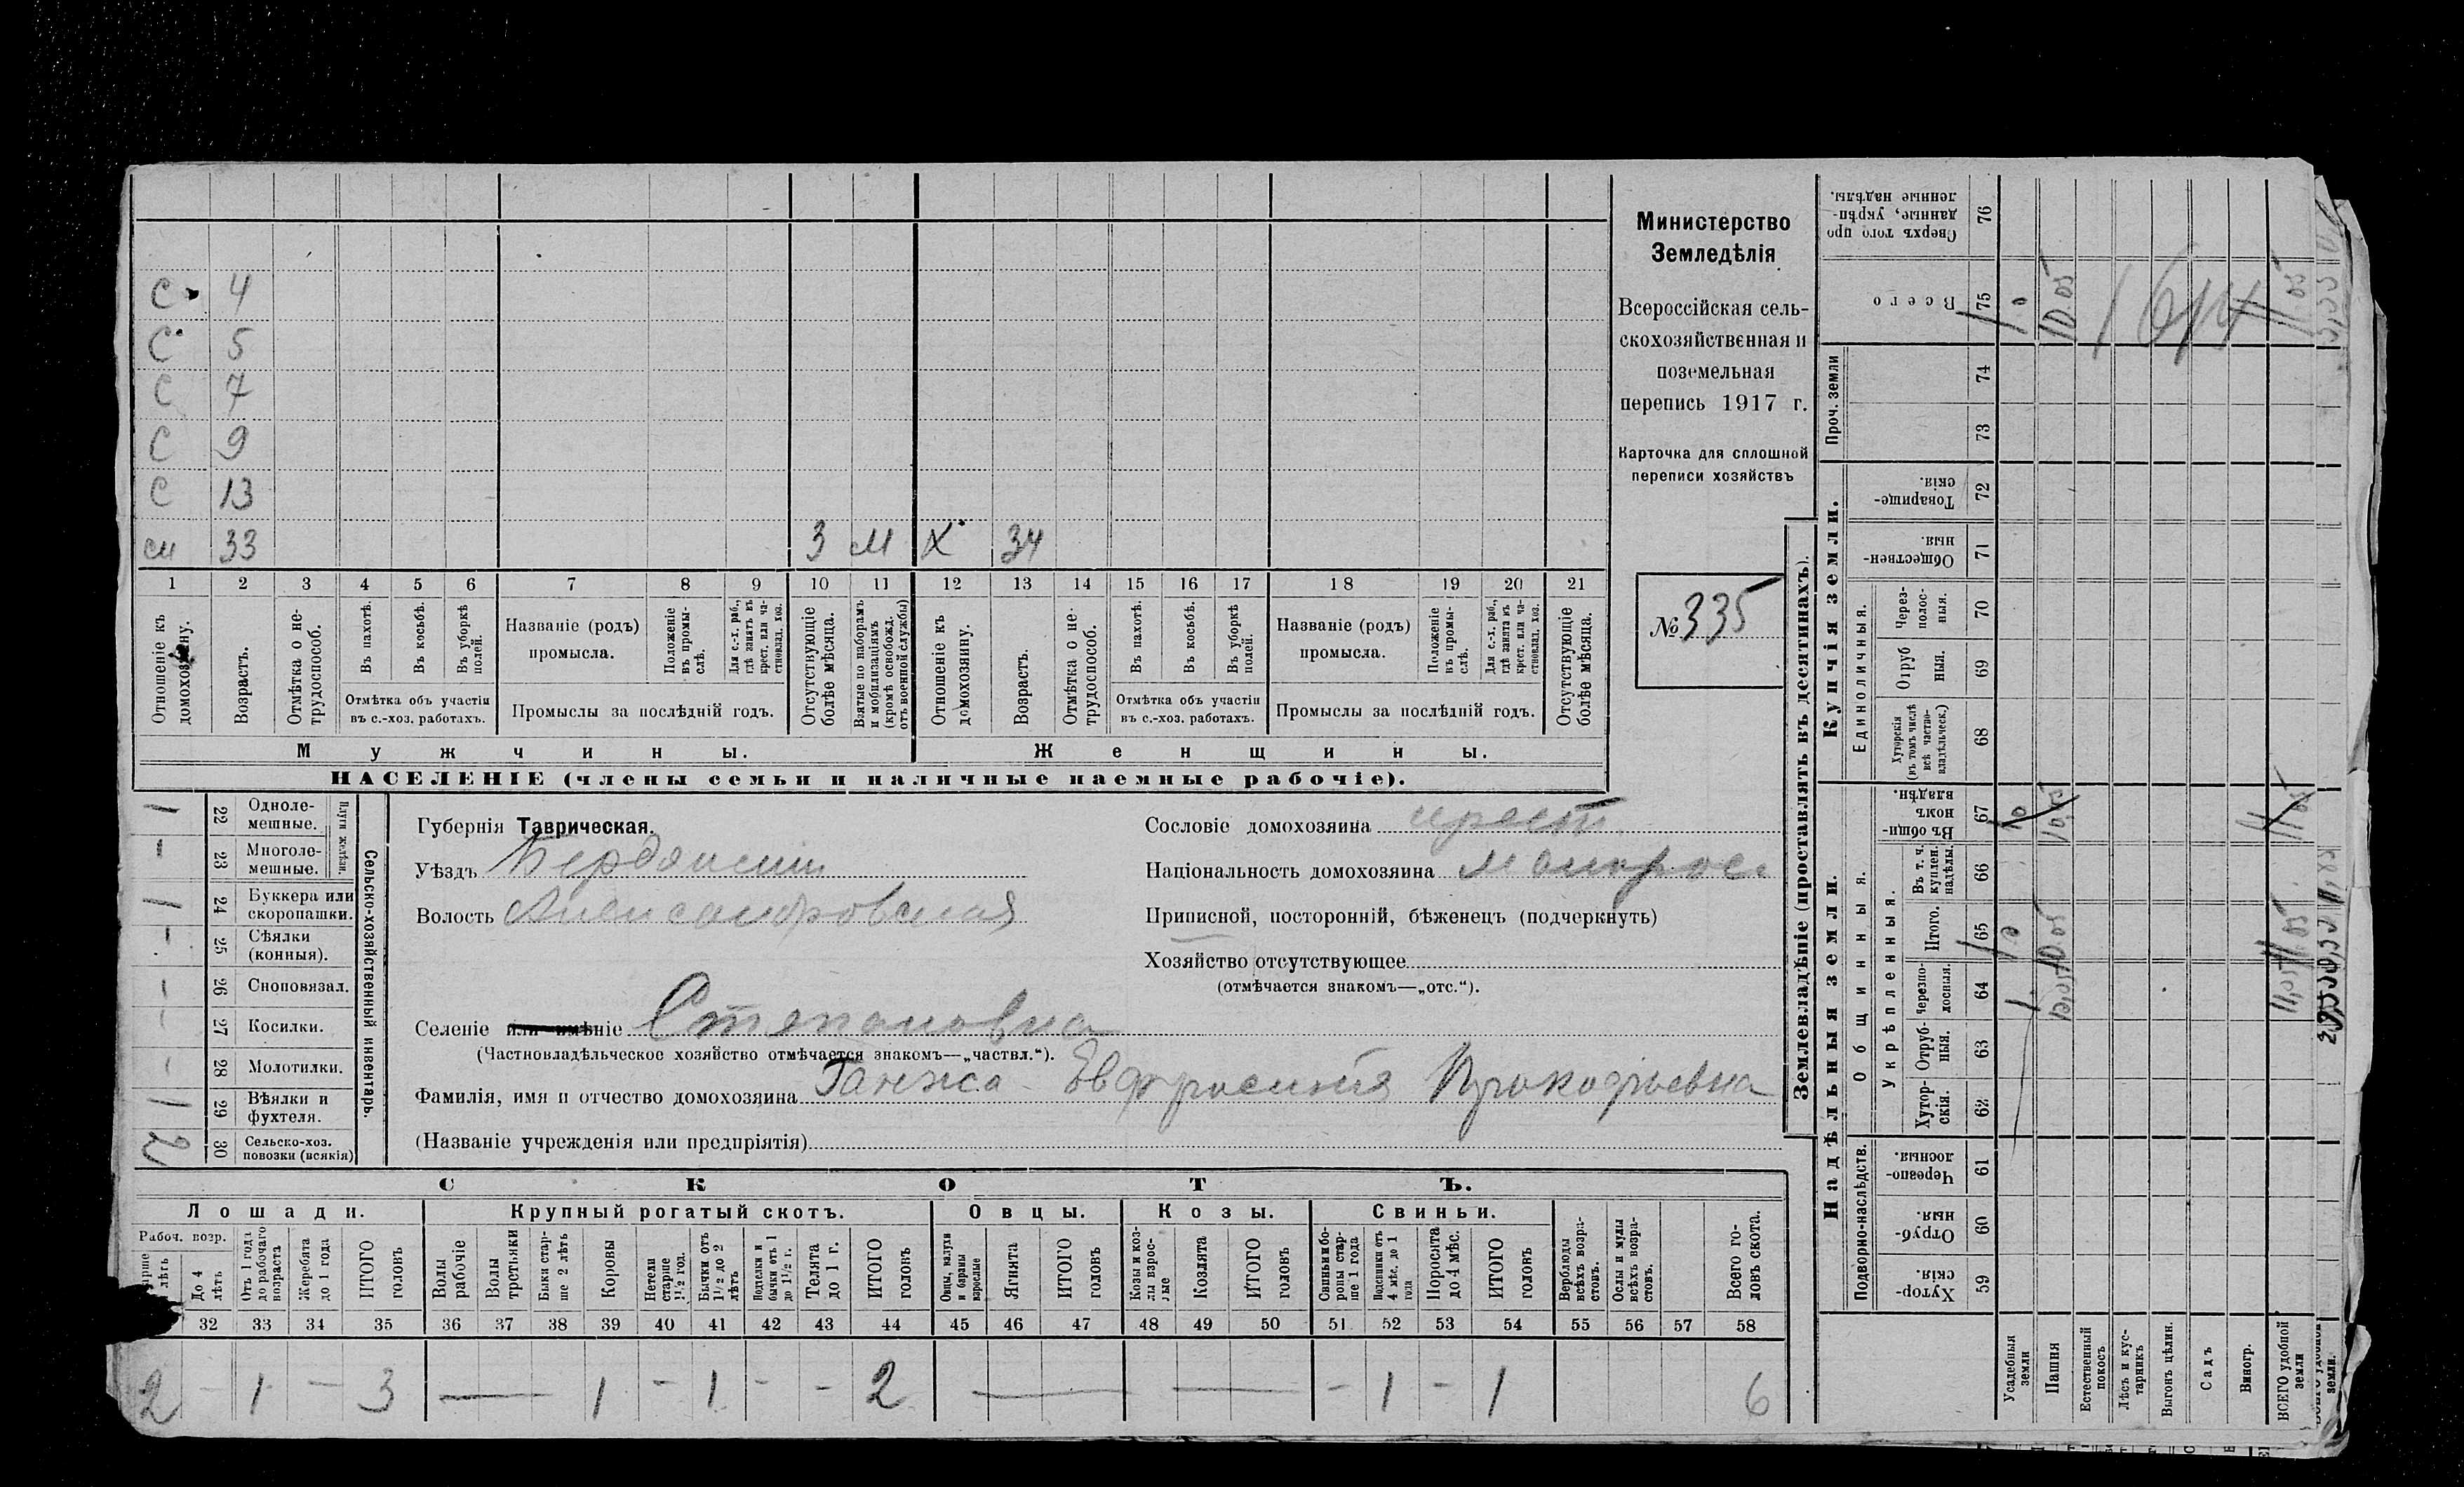 С 4
С 5
С 7
С 9
С 13
см 33 3 м Х 34
1 2 3 4 5 6 7 8 9 10 11 12 13 14 15 16 17 18 19 20 21
Отношеніе къ домохозяину.
Возрастъ.
Отмѣтка о не-трудоспособ.
Въ пахотѣ.
Въ косьбѣ.
Въ уборкѣ полей.
Отмѣтка объ участіи въ с.-хоз. работахъ.
Названіе (родъ) промысла.
Положеніе въ промы-слѣ.
Для с.-х. раб., гдѣ занятъ въ крест. или ча-стновлад. хоз.
Промыслы за послѣдній годъ.
Отсутствующіе болѣе мѣсяца.
Взятые по наборамъ и мобилизаціямъ (кромѣ освобожд. отъ военной службы)
Отношеніе къ домохозяину.
Возрастъ.
Отмѣтка о не-трудоспособ.
Въ пахотѣ.
Въ косьбѣ.
Въ уборкѣ полей.
Отмѣтка объ участіи въ с.-хоз. работахъ.
Названіе (родъ) промысла.
Положеніе въ промы-слѣ.
Для с.-х. раб., гдѣ занята въ крест. или ча-стновлад. хоз.
Промыслы за послѣдній годъ.
Отсутствующіе болѣе мѣсяца.
Мужчины. Женщины.
НАСЕЛЕНІЕ (члены семьи и наличные наемные рабочіе).
Министерство
Земледѣлія
Всероссійская сель-
скохозяйственная и
поземельная
перепись 1917 г.
Карточка для сплошной
переписи хозяйствъ
№ 335
Сельско-хозяйственный инвентарь.
Плуги желѣзн.
1 22 Одноле-мешные.
– 23 Многоле-мешные.
1 24 Буккера или скоропашки.
– 25 Сѣялки (конныя).
– 26 Сноповязал.
– 27 Косилки.
– 28 Молотилки.
1 29 Вѣялки и фухтеля.
2 30 Сельско-хоз. повозки (всякія)
Губернія Таврическая.
Уѣздъ Бердянскій
Волость Александровская
Сословіе домохозяина крест
Національность домохозяина малорос
Приписной, посторонній, бѣженецъ (подчеркнуть)
Хозяйство отсутствующее
(отмѣчается знакомъ—„отс.“).
Селеніе или имѣніе Степановка
(Частновладѣльческое хозяйство отмѣчается знакомъ—„частвл.“).
Фамилія, имя и отчество домохозяина Ганжа Евфросинія Прокофьевна
(Названіе учрежденія или предпріятія)
СКОТЪ.
Лошади. Крупный рогатый скотъ. Овцы. Козы. Свиньи.
Рабоч. возр.
До 4 лѣтъ
Отъ 1 года до рабочаго возраста
Жеребята до 1 года
ИТОГО головъ
Волы рабочіе
Волы третьяки
Быки стар-ше 2 лѣтъ
Коровы
Нетели старше 1½ год.
Бычки отъ 1½ до 2 лѣтъ
Подтелки и бычки отъ 1 до 1½ г.
Телята до 1 г.
ИТОГО головъ
Овцы, валухи и бараны взрослые
Ягнята
ИТОГО головъ
Козы и коз-лы взрос-лые
Козлята
ИТОГО головъ
Свиньи и бо-ровы стар-ше 1 года
Подсвинки отъ 4 мѣс. до 1 года
Поросята до 4 мѣс.
ИТОГО головъ
Верблюды всѣхъ возра-стовъ.
Ослы и мулы всѣхъ возра-стовъ.
Всего го-ловъ скота.
32 33 34 35 36 37 38 39 40 41 42 43 44 45 46 47 48 49 50 51 52 53 54 55 56 57 58
2 – 1 – 3 — 1 – 1 – – 2 — — – 1 – 1 6
Землевладѣніе (проставлять въ десятинахъ).
Надѣльныя земли. Купчія земли. Проч. земли
Подворно-наслѣдств. Общинныя. Единоличныя.
Укрѣпленныя.
59 Хутор-скія.
60 Отруб-ныя.
61 Черезпо-лосныя.
62 Хутор-скія.
63 Отруб-ныя.
64 черезпо-лосныя.
65 Итого.
66 Въ т. ч. куплен. надѣлы.
67 Въ общи-номъ владѣн.
68 Хуторскія (въ томъ числѣ всѣ частно-владѣльческ.)
69 Отруб ныя.
70 Через-полос-ныя.
71 Обществен-ныя.
72 Товарище-скія.
73
74
75 Всего
76 Сверхъ того про данные, укрѣп-ленные надѣлы.
Усадебныя земли
Пашня
Естественный покосъ
Лѣсъ и кус-тарникъ
Выгонъ цѣлин.
Садъ
Виногр.
ВСЕГО удобной земли
10.05
11.05